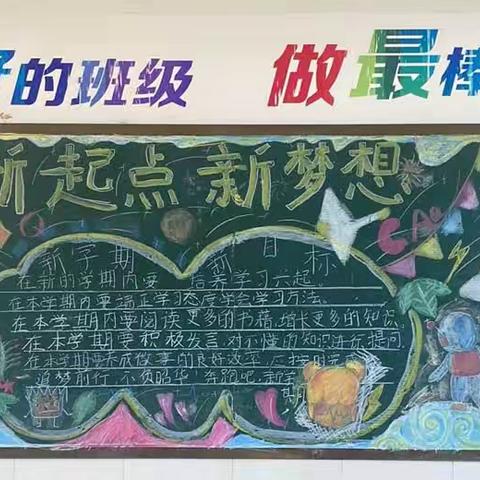 好的班级 做最棒
新起点 新梦想
新学期 新目标
在新的学期内要 培养学习兴起。
在本学期内要端正学习态度学会学习方法。
在本学期内要阅读更多的书籍,增长更多的知识
在本学期内要积极发言对不懂的知识进行提问
在本学期要养成做事的良好效率
追梦前行 不负韶华 奔跑吧